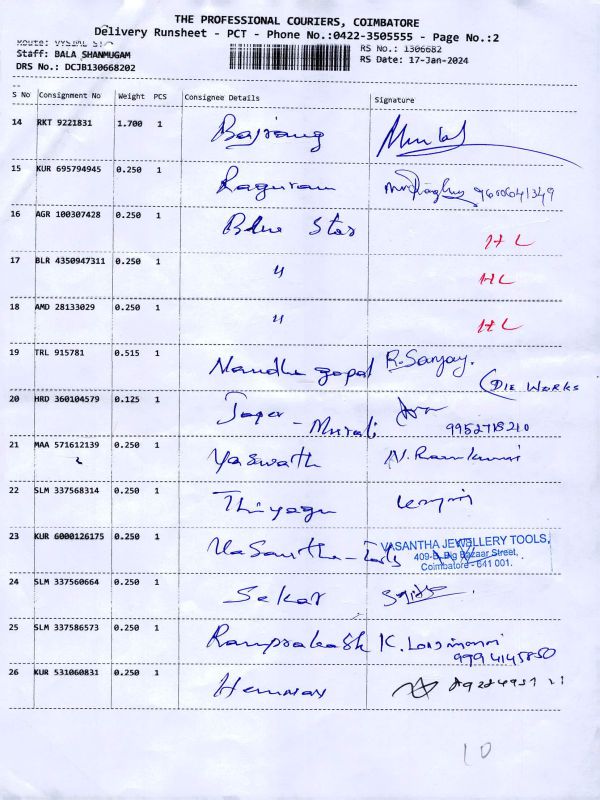 THE PROFESSIONAL COURIERS, COIMBATORE
Delivery Runsheet - PCT - Phone No.:0422-3505555 - Page No.:2
Staff: BALA SHANMUGAM
RS No.: 1306682
DRS No.: DCJB130668202
RS Date: 17-Jan-2024
S No Consignment No Weight PCS Consignee Details Signature
14 RKT 9221831 1.700 1 Bajrang
15 KUR 695794945 0.250 1 Raguram 9600641349
16 AGR 100307428 0.250 1 Blue Star HL
17 BLR 4350947311 0.250 1 " HL
18 AMD 28133029 0.250 1 " HL
19 TRL 915781 0.515 1 Nandha gopal R. Sanjay.
(DIE WORKS
20 HRD 360104579 0.125 1 - Murali
9952718210
21 MAA 571612139 0.250 1 Yaswath N. Ramkumar
22 SLM 337568314 0.250 1 Thiyagu
23 KUR 6000126175 0.250 1 Vasantha - VASANTHA JEWELLERY TOOLS,
409-B, Big Bazaar Street,
Coimbatore - 641 001.
24 SLM 337560664 0.250 1 Sekar
25 SLM 337586573 0.250 1 Ramprakash K.
9994145850
26 KUR 531060831 0.250 1
10